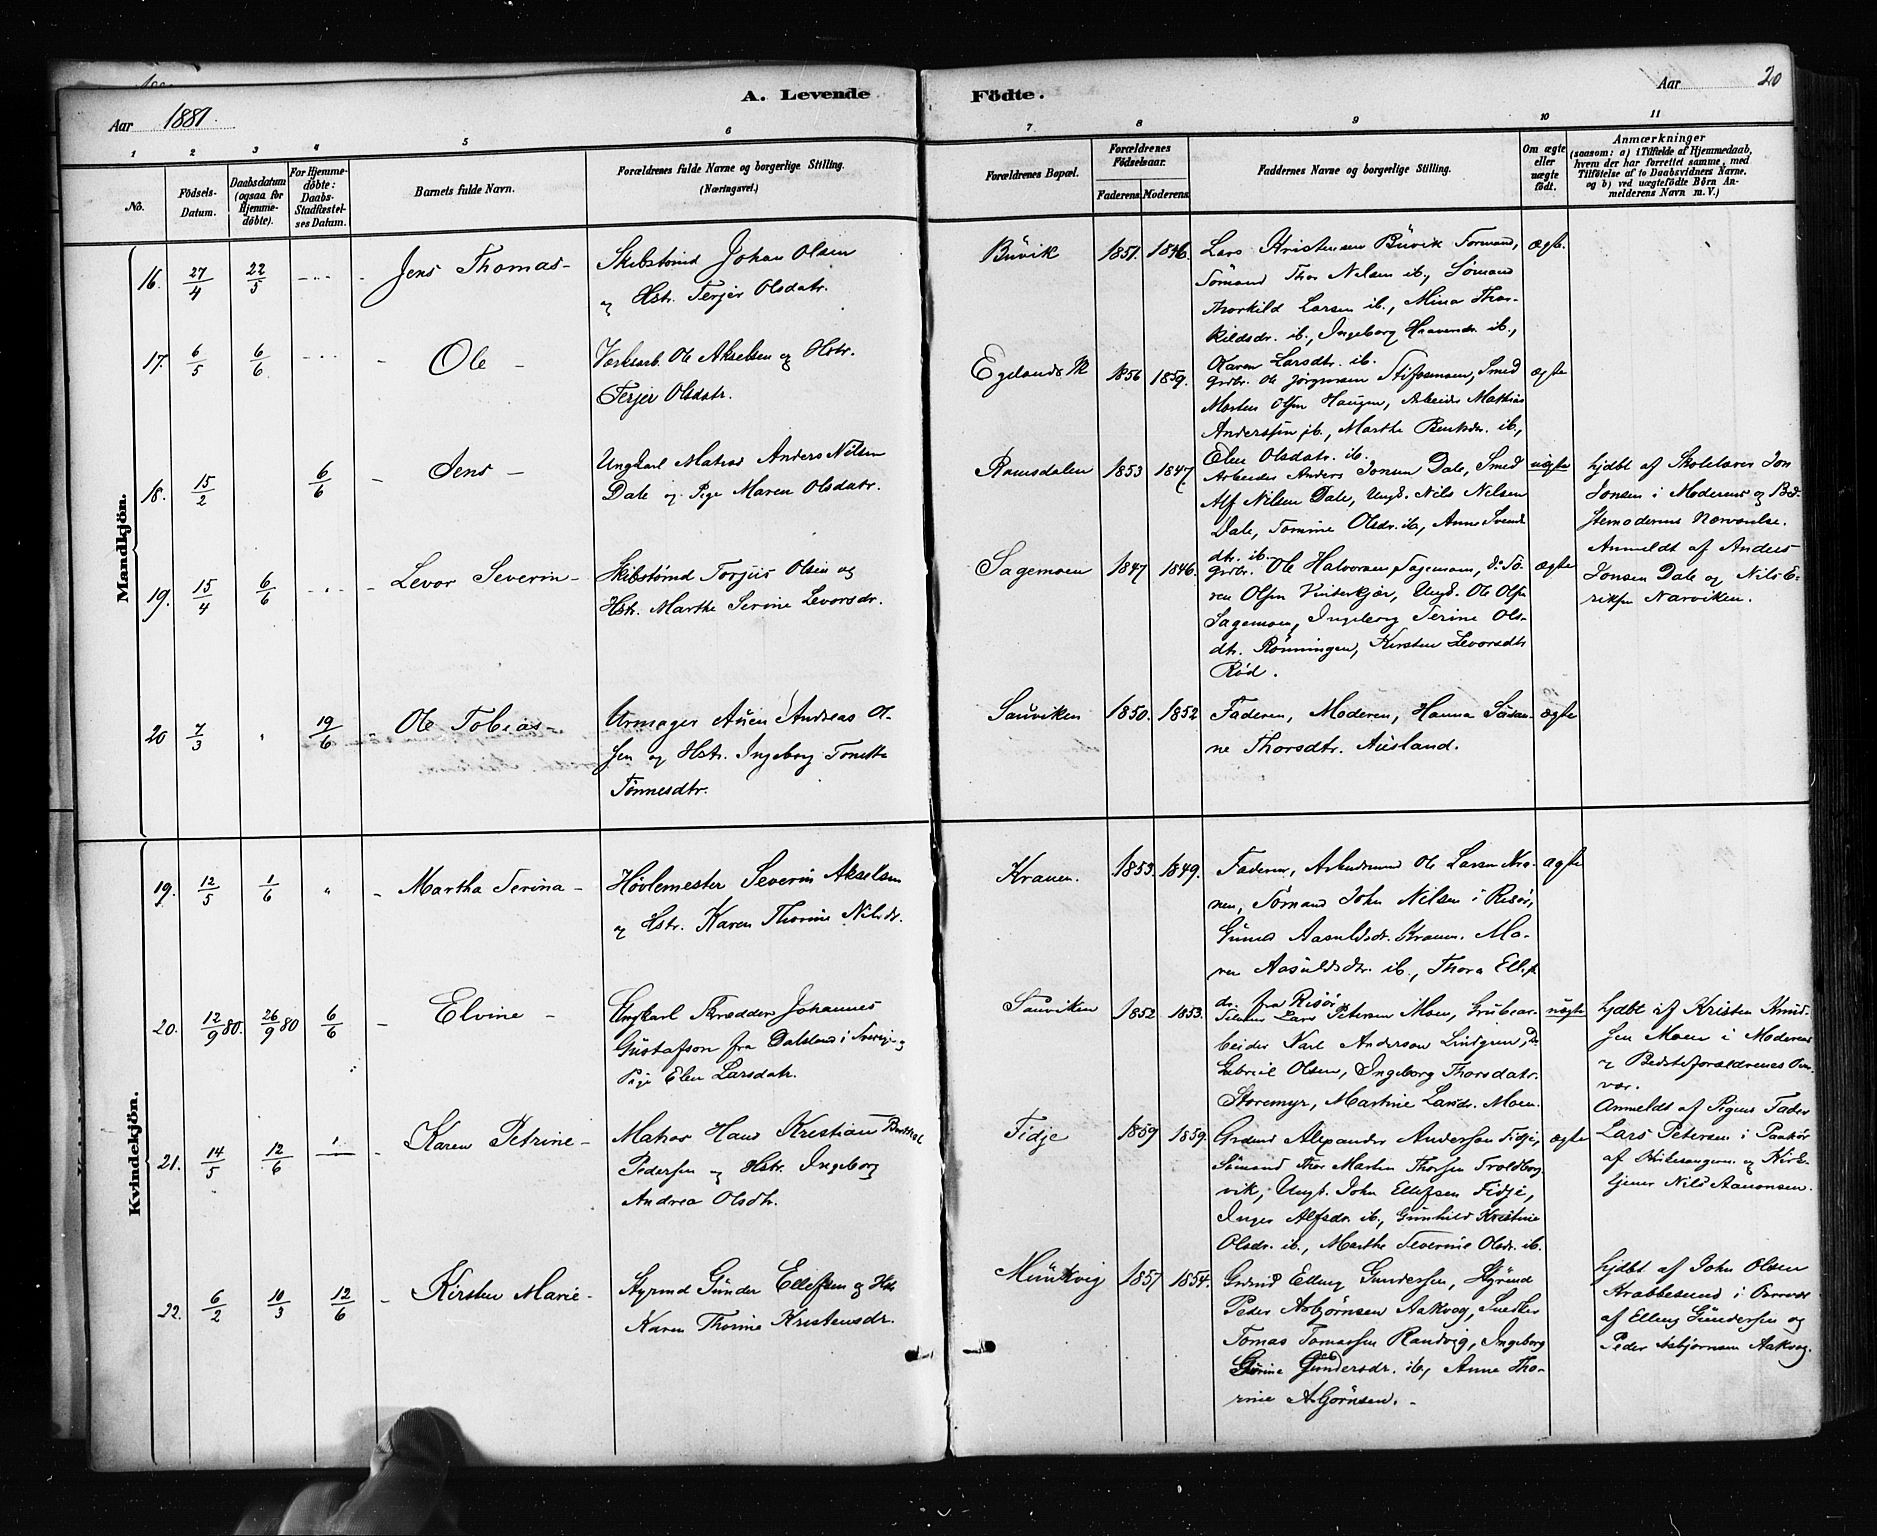 Aar 1881.
A. Levende
Födte.
Aar 20
1 2 3 4 5 6 7 8 9 10 11
No.
Födsels-
Datum.
Daabsdatum
(ogsaa for
Hjemme-
döbte).
For Hjemme-
döbte:
Daabs-
Stadfæstel-
ses Datum.
Barnets fulde Navn.
Forældrenes fulde Navne og borgerlige Stilling.
(Næringsvei.)
Forældrenes Bopæl.
Forældrenes
Födselsaar.
Faderens. Moderens.
Faddernes Navne og borgerlige Stilling.
Om ægte
eller
uægte
födt.
Anmærkninger
(saasom: a) i Tilfælde af Hjemmedaab,
hvem der har forrettet samme, med
Tilföielse af to Daabsvidners Navne,
og b) ved uægtefödte Börn An-
melderens Navn m. V.)
Mandkjön.
16. 27/4 22/5 Jens Thomas
Skibstømd Johan Olsen
og Hstr. Terjer Olsdatr.
Büvik 1851. 1846.
Lars Kristensen Büvik Tormand,
Sømand Thor Nilsen ib., Sømand
Thorkild Larsen ib., Mina Thor-
kildsdr. ib., Ingeborg Haavendr. ib.,
Karen Larsdtr. ib.
ægte.
17. 6/5 6/6 Ole
Verksarb. Ole Akselsen og Hstr.
Terjer Olsdatr.
Egelands V. 1856 1859.
Grdbr. Ole Jørgensen Stifosmoen, Smed
Morten Olsen Haugen, Arbeider Mathias
Andersen ib., Marthe Bentsdr. ib.,
Elen Olsdatr. ib.
ægte
18. 15/2 6/6 Jens
Ungkarl Matros Anders Nilsen
Dale og Pige Maren Olsdatr.
Ramsdalen 1853 1847
Arbeider Anders Jonsen Dale, Smed
Alf Nilsen Dale, Ungk. Nils Nilsen
Dale, Tomine Olsdr. ib, Anne Svends
dtr. ib.
uægte
hjdbt af Skolelærer Jon
Jonsen i Moderens og Bed-
stemoderens Nærværelse.
Anmeldt af Anders
Jonsen Dale og Nils E-
riksen Narviken.
19. 15/4 6/6 Levor Severin
Skibstømd Torjus Olsen og
Hstr. Marthe Serine Levorsdr.
Sagemoen 1847 1846.
Grdbr. Ole Halvorsen Sagemoen, do Sø-
ren Olsen Vinterkjær, Ungk. Ole Olsen
Sagemoen, Ingeborg Serine Ols-
dtr. Rønningen, Kirsten Levorsdtr
Rød.
ægte
20 7/3 19/6 Ole Tobias
Urmager Auen Andreas Ol-
sen og Hstr. Ingeborg Tonette
Tønnesdtr.
Sauviken 1850. 1852
Faderen, Moderen, Hanna Sørine
Thorsdtr. Ausland.
ægte
Kvindekjön.
19. 12/5 1/6 Martha Serina
Høvlemester Severin Akselsen
og Hstr. Karen Thorine Nilsdr.
Kranen. 1853. 1849.
Faderen, Arbeidsmand Ole Larsen Kra-
nen, Sømand John Nilsen i Risør,
Guned Aasuldsdr. Kranen. Ma-
ren Aasuldsdtr. ib., Thora Ellefs
dr. fra Risør.
ægte
20. 12/9 80. 26/9 80 6/6 Elvine
Ungkarl Skrædder Johannes
Gustafson fra Dalsland i Sverige og
Pige Elen Larsdatr.
Sauviken 1852 1853.
Lars Petersen Moen, Grubear-
beider Karl Anderson Lindgren, Do
Gabriel Olsen, Ingeborg Thorsdatr.
Storemyr, Martine Larsdr. Moen.
uægte
hjdbt af Kristen Knud-
sen Moen i Moderens
og Bedsteforældrenes Nær-
vær.
Anmeldt af Pigens Fader
Lars Petersen i Paahør
af Kirkesangeren og Kirke-
tjener Nils Aanonsen.
21. 14/5 12/6 Karen Petrine
Matros Hans Kristian Berthel
Pedersen og Hstr. Ingeborg
Andrea Olsdtr.
Fidje 1859 1859.
Grdmd Alexander Andersen Fidje,
Sømand Thor Martin Thorsen Troldberg-
vik, Ungk. John Ellefsen Fidje,
Inger Alfsdr. ib, Gunhild Kristine
Olsdr. ib., Marthe Severine Olsdr. ib.
ægte
22. 6/2 10/3 12/6 Kirsten Marie
Styrmd Günder Ellefsen og Hstr.
Karen Thorine Kristensdr.
Munkvig 1857 1854.
Grdmd Elling Gundersen, Styrmd
Peder Asbjørnsen Aakvog, Snedker
Tomas Tomassen Randvig, Ingeborg
Gundersdr. ib, Anne Tho-
rine Asbjørnsen.
hjdbt af John Olsen
Krabbesund i Overvær
af Elling Gundersen og
Peder Asbjørnsen Aakvog.